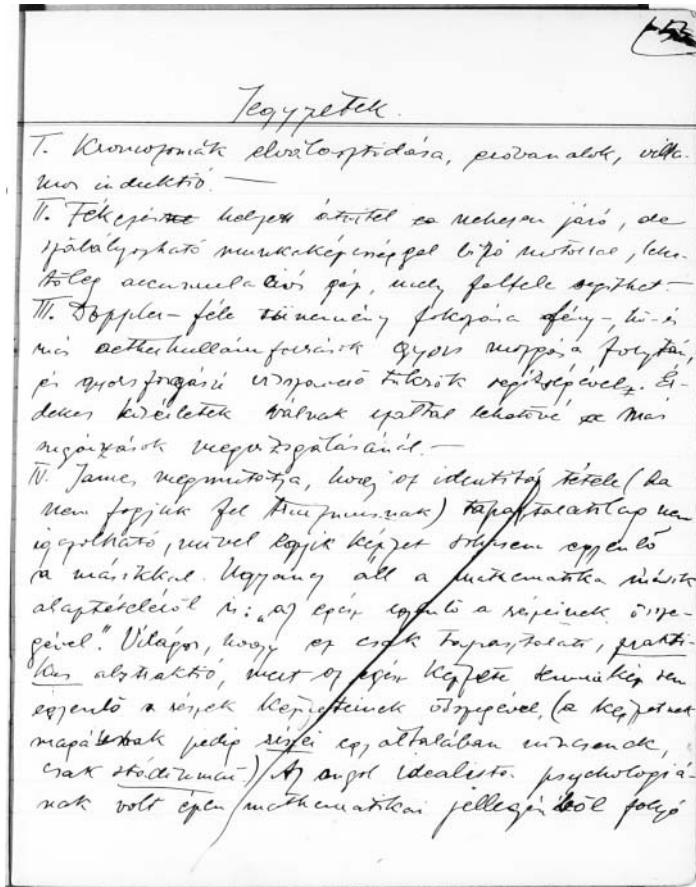 Jegyzetek.
I. Kromoszomák elválasztódása, villa-
mos indukció. —
II. helyett átvitel nehezen járó, de
szabályozható munkaképességgel bíró motorral, lehe-
tőleg accumulatiós gép, mely felfele segíthet. —
III. Doppler-féle tünemény fokozása fény-, hő- és
más aetherhullámforrások gyors mozgása folytán,
és gyorsforgású visszaverő tükrök segítségével. Ér-
dekes kisérletek válnak ezáltal lehetővé más
sugárzások megvizsgálásánál. —
IV. James megmutatja, hogy az identitás tétele (ha
nem fogjuk fel ) tapasztalatilag nem
igazolható, mivel egyik képzet sohasem egyenlő
a másikkal. Ugyanez áll a mathematika másik
alaptételéről is: „az egész egyenlő a részeinek össze-
gével." Világos, hogy ez csak tapasztalati, prakti-
kus absztraktió, mert az egész képzete semmikép sem
egyenlő a részek képzeteinek összegével, (a képzetnek
magának pedig részei egyáltalában nincsenek,
csak ) Az angol idealista psychologiá-
nak volt épen mathematikai jellegéből folyó